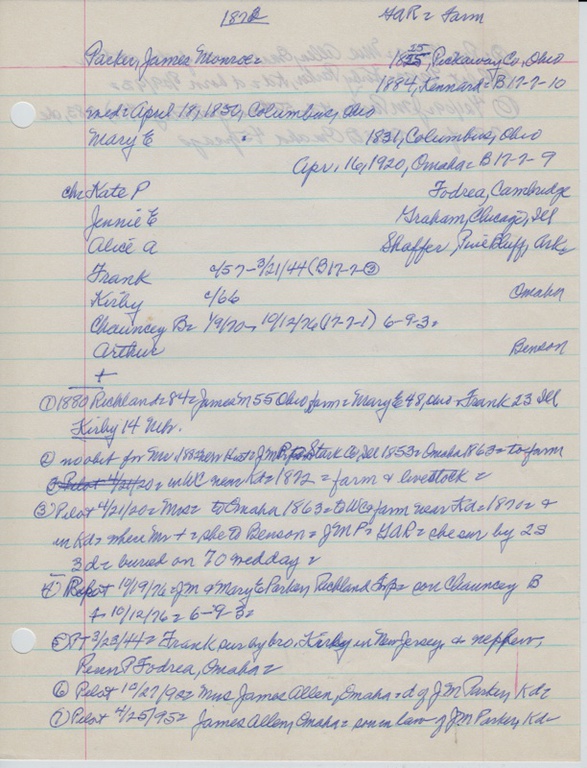 1872 GAR = Farm
Parker, James Monroe = 1825, Pickaway, Co, Ohio
25
1884, Kennard = B 17-7-10
md = April 18, 1850, Columbus, Ohio
Mary E 1831, Columbus, Ohio
Apr. 16, 1920, Omaha = B 17-7-9
ch: Kate P Fodrea, Cambridge
Jennie E Graham, Chicago, Ill
Alice A Shaffer, Pine Bluff, Ark
Frank c/57 - 3/21/44 (B17-7-③
Kirby c/66 Omaha
Chauncey B = 1/9/70 - 10/12/76 (17-7-1) 6-9-3 =
Arthur Benson
+
① 1880 Richland = 84 = James M 55 Ohio farm = Mary E 48, Ohio = Frank 23 Ill
Kirby 14 Nebr.
② no obit for Mr. 1882 Hist = J M P Stark Co, Ill 1853 = Omaha 1863 = to farm
Pilot 4/21/20 = in WC near Kd = 1872 = farm & livestock =
③ Pilot 4/21/20 = Mrs = to Omaha 1863 = to WC = farm near Kd = 1870 = &
in Kd = where Mr + = she to Benson = JMP = GAR = she sur by 2S
3d = buried on 70 wedday =
4) Pilot 10/19/76 = JM & Mary E Parker, Richland = son Chauncey B
+ 10/12/76 = 6-9-3 =
⑤ PT 3/23/44 = Frank sur by bro. Kirby in New Jersey, & nephew,
Penn P Fodrea, Omaha =
⑥ Pilot 10/27/98 = Mrs James Allen, Omaha = d of JM Parker, Kd =
⑦ Pilot 4/25/95 = James Allen, Omaha = son in law of JM Parker, Kd =